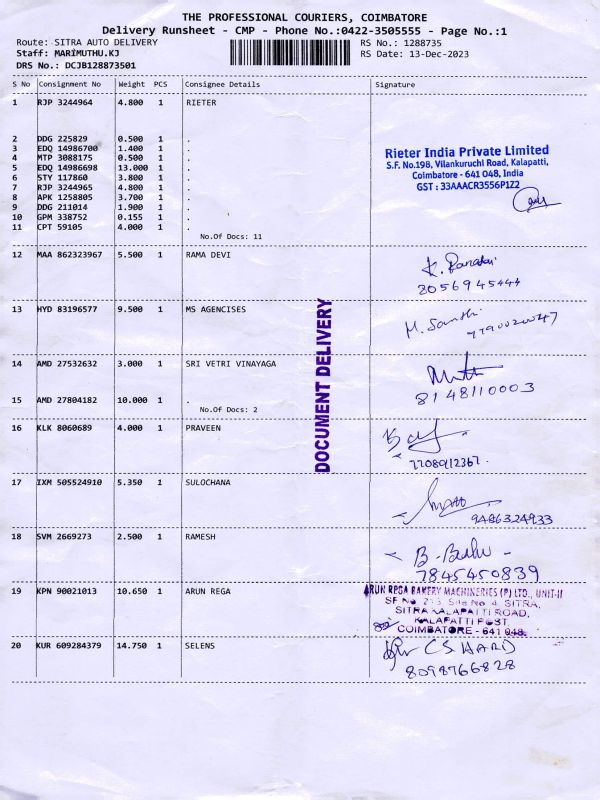 THE PROFESSIONAL COURIERS, COIMBATORE
Delivery Runsheet - CMP - Phone No.:0422-3505555 - Page No.:1
Route: SITRA AUTO DELIVERY RS No.: 1288735
Staff: MARIMUTHU.KJ RS Date: 13-Dec-2023
DRS No.: DCJB128873501
S No Consignment No Weight PCS Consignee Details Signature
1 RJP 3244964 4.800 1 RIETER
2 DDG 225829 0.500 1 .
3 EDQ 14986700 1.400 1 .
4 MTP 3088175 0.500 1 .
5 EDQ 14986698 13.000 1 .
6 STY 117860 3.800 1 .
7 RJP 3244965 4.800 1 .
8 APK 1258805 3.700 1 .
9 DDG 211014 1.900 1 .
10 GPM 338752 0.155 1 .
11 CPT 59105 4.000 1 .
No.Of Docs: 11
Rieter India Private Limited
S.F. No.198, Vilankuruchi Road, Kalapatti,
Coimbatore - 641 048, India
GST : 33AAACR3556P1Z2
12 MAA 862323967 5.500 1 RAMA DEVI
8056945444
13 HYD 83196577 9.500 1 MS AGENCISES
M. Santhi
14 AMD 27532632 3.000 1 SRI VETRI VINAYAGA
8148110003
15 AMD 27804182 10.000 1 .
No.Of Docs: 2
DOCUMENT DELIVERY
16 KLK 8060689 4.000 1 PRAVEEN
17 IXM 505524910 5.350 1 SULOCHANA
9486324933
18 SVM 2669273 2.500 1 RAMESH
7845450839
19 KPN 90021013 10.650 1 ARUN REGA
ARUN REGA BAKERY MACHINERIES (P) LTD., UNIT-II
SITRA KALAPATTI ROAD,
KALAPATTI POST
COIMBATORE - 641 048.
20 KUR 609284379 14.750 1 SELENS
8098766828